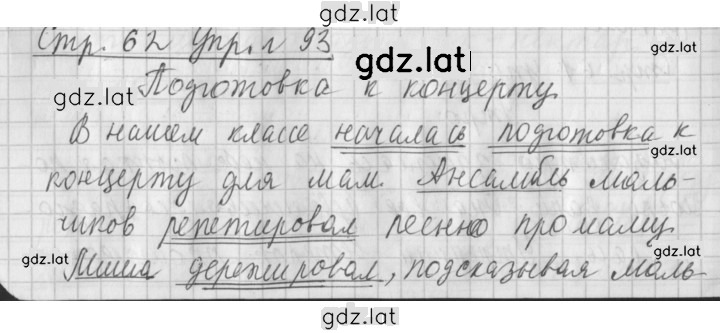 gdz.lat
Стр. 62 Упр. 93
gdz.lat
gdz.lat
Подготовка к концерту
gdz.lat
В нашем классе началась подготовка к
gdz.lat
концерту для мам. Ансамбль маль-
чиков репетировал песню про маму
gdz.lat
gdz.lat
Миша дережировал, подсказывая маль-
gdz.lat